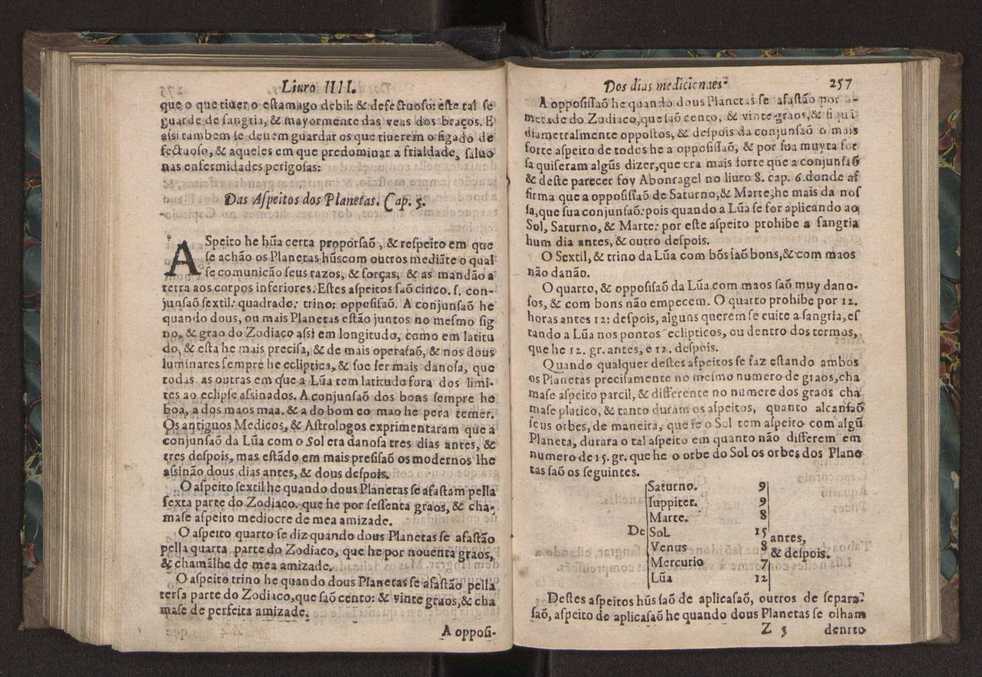 Liuro IIII.
que o que tiuer o estamago debil: & defectuoso: este tal se
guarde de sangria, & mayormente das veas dos braços. E
assi tambem se deuem guardar os que tiuerem o figado de
fectuoso, & aqueles em que predominar a frialdade, saluo
nas enfermidades perigosas:
Das Aspeitos dos Planetas. Cap. 5.
ASpeito he hũa certa proporsaõ, & respeito em que
se achão os Planetas hũs com outros mediãte o qual
se comunicão seus razos, & forças, & as mandão a
terra aos corpos inferiores. Estes aspeitos saõ cinco. s. con-
junsaõ sextil: quadrado: trino: opposisaõ. A conjunsaõ he
quando dous, ou mais Planetas estão juntos no mesmo sig
no, & grao do Zodiaco assi em longitudo, como em latitu
do, & esta he mais precisa, & de mais operasaõ, & nos dous
luminares sempre he ecliptica, & soe ser mais danosa, que
todas as outras em que a Lũa tem latitudo fora dos limi-
tes ao eclipse assinados. A conjunsaõ dos bons sempre he
boa, a dos maos maa. & a do bom co mao he pera temer.
Os antiguos Medicos, & Astrologos exprimentaram que a
conjunsaõ da Lũa com o Sol era danosa tres dias antes, &
tres despois, mas estãdo em mais presisaõ os modernos lhe
assinão dous dias antes, & dous despois.
O aspeito sextil he quando dous Planetas se afastam pella
sexta parte do Zodiaco. que he por sessenta graos, & cha-
mase aspeito mediocre de mea amizade.
O aspeito quarto se diz quando dous Planetas se afastão
pella quarta parte do Zodiaco, que he por nouenta graos,
& chamasse de mea amizade.
O aspeito trino he quando dous Planetas se afastão pella
tersa parte do Zodiaco, que saõ cento: & vinte graos, & cha
mase de perfeita amizade.
A opposi-
Dos dias medicienaes. 257
A opposissaõ he quando dous Planetas se afastão por a
metade do Zodiaco, que saõ cento, & vinte graos, & si qui
diametralmente oppostos, & despois da conjunsaõ o mais
forte aspeito de todes he a opposissaõ, & por sua muyta for
sa quiseram algũs dizer, que era mais forte que a conjunsaõ
& deste parecer foy Abonragel no liuro 8. cap. 6. donde af
firma que a opposissaõ de Saturno, & Marte, he mais da nos
sa, que sua conjunsaõ: pois quando a Lũa se for aplicando ao
Sol, Saturno, & Marte: por este aspeito prohibe a sangria
hum dia antes, & outro despois.
O Sextil, & trino da Lũa com bõs saõ bons, & com maos
não danão.
O quarto, & opposisaõ da Lũa com maos saõ muy dano-
sos, & com bons não empecem. O quarto prohibe por 12.
horas antes 12: despois, alguns querem se euite a sangria, es
tando a Lũa nos pontos eclipticos, ou dentro dos termos,
que he 12. gr. antes, e 12. despois.
Quando qualquer destes aspeitos se faz estando ambos
os Planetas precisamente no mesmo numero de graos, cha
mase aspeito parcil, & differente no numere dos graos cha
mase platico, & tanto duram os aspeitos, quanto alcansaõ
seus orbes, de maneira, que se o Sol tem aspeito com algũ
Planeta, durara o tal aspeito em quanto não differem em
numero de 15. gr. que he o orbe do Sol os orbes dos Plane
tas saõ os seguintes.
Saturno. 9
Iuppiter. 9
Marte. 8
De SoL 15 antes,
Venus 8 & despois.
Mercurio 7
Lũa 12
Destes aspeitos hũs saõ de aplicasaõ, outros de separa-
saõ, aspeito de aplicasaõ he quando dous Planetas se olham
Z 5 dentro